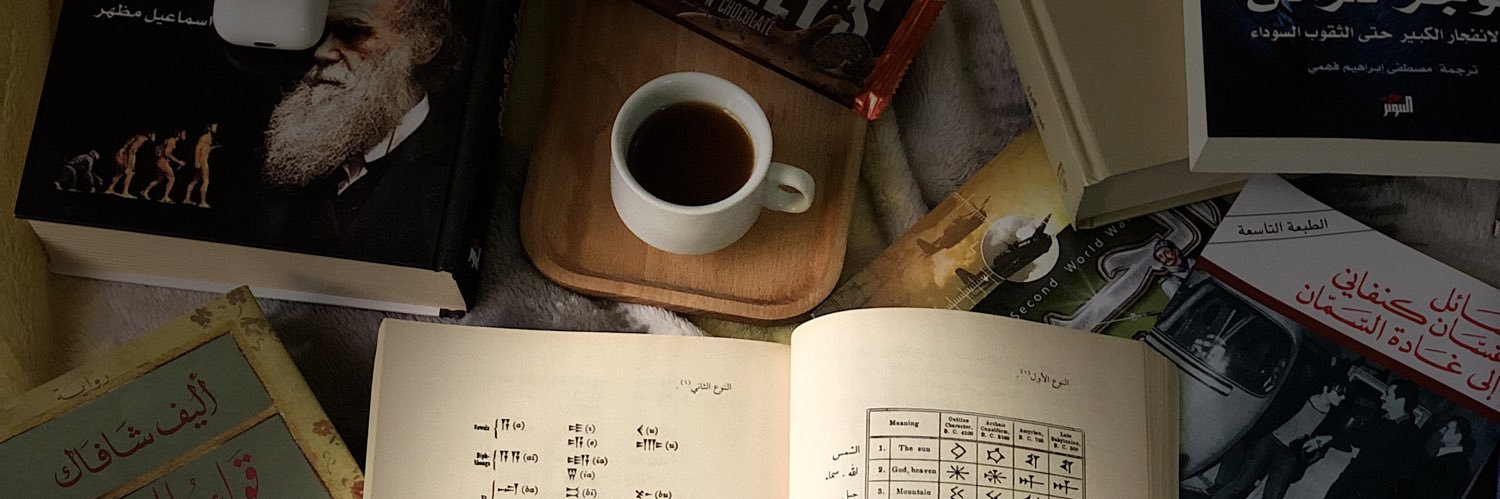 اسماعيل مظهر
CHOCOLATE
لانفجار الكبير حتى الثقوب السوداء
ترجمة مصطفى إبراهيم فهمي
التنوير
Second World Wa
الطبعة التاسعة
غسّان كنفاني
إلى غادة السمّان
رواية
أليف شافاك
النوع الثاني (١).
Vowels (a) (i) (u)
(e) (u)
Diph-thongs (ai) (ia)
(ia)
B (ba) (bi) (bu)
النوع الأول (١).
Meaning
Outline Character, B. C. 4500
Archaic Cuneiform, B. C. 2500
Assyrian, B. C. 700
Late Babylonian, B. C. 500
الشمس 1. The sun
الله، سماء 2. God, heaven
جبل 3. Mountain